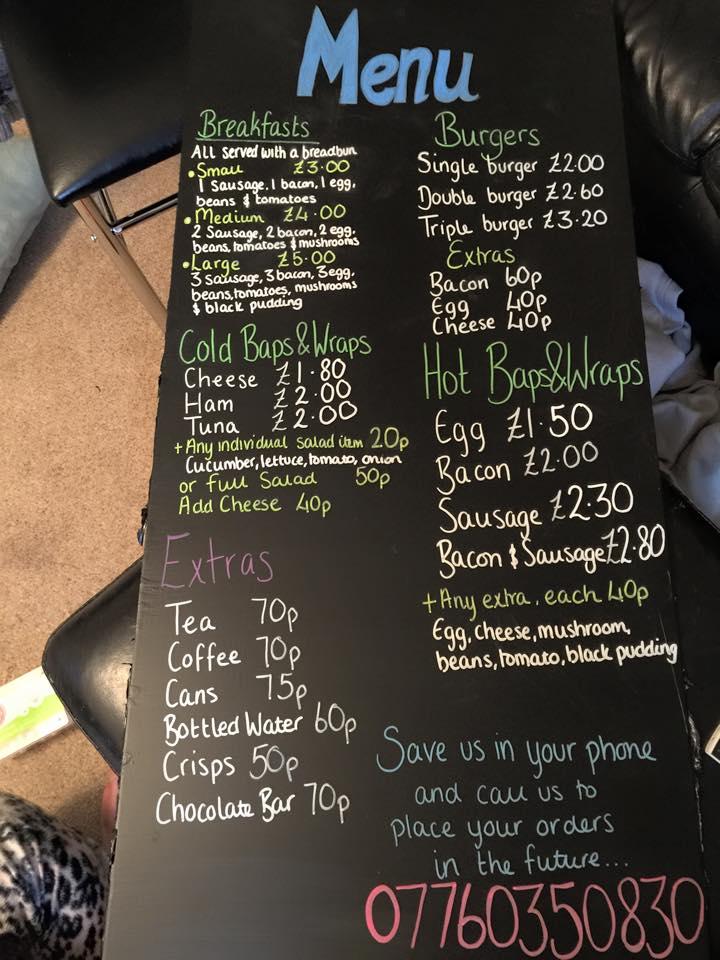 Menu
Breakfasts
All served with a breadbun
•Small £3.00
1 Sausage, 1 bacon, 1 egg,
beans & tomatoes
•Medium £4.00
2 Sausage, 2 bacon, 2 egg,
beans, tomatoes & mushrooms
•Large £5.00
3 Sausage, 3 bacon, 3 egg,
beans, tomatoes, mushrooms
& black pudding
Cold Baps & Wraps
Cheese £1.80
Ham £2.00
Tuna £2.00
+ Any individual salad item 20p
Cucumber, lettuce, tomato, onion
or full Salad 50p
Add Cheese 40p
Extras
Tea 70p
Coffee 70p
Cans 75p
Bottled Water 60p
Crisps 50p
Chocolate Bar 70p
Burgers
Single burger £2.00
Double burger £2.60
Triple burger £3.20
Extras
Bacon 60p
Egg 40p
Cheese 40p
Hot Baps & Wraps
Egg £1.50
Bacon £2.00
Sausage £2.30
Bacon & Sausage £2.80
+ Any extra, each 40p
Egg, cheese, mushroom,
beans, tomato, black pudding
Save us in your phone
and call us to
place your orders
in the future...
07760350830